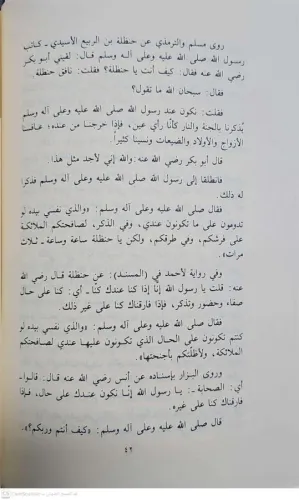 روى مسلم والترمذي عن حنظلة بن الربيع الأسيدي ـ كاتب
رسول الله صلى الله عليه وعلى آله وسلم قال: لقيني أبو بكر
رضي الله عنه فقال: كيف أنت يا حنظلة؟ فقلت: نافق حنظلة.
فقال: سبحان الله ما تقول؟
فقلت: نكون عند رسول الله صلى الله عليه وعلى آله وسلم
يُذكرنا بالجنة والنار كأنّا رأي عين، فإذا خرجنا من عنده؛ عافسنا
الأزواج والأولاد والضيعات ونسينا كثيراً.
قال أبو بكر رضي الله عنه: والله إني لأجد مثل هذا.
فانطلقا إلى رسول الله صلى الله عليه وعلى آله وسلم فذكرا
له ذلك.
فقال صلى الله عليه وعلى آله وسلم: «والذي نفسي بيده لو
تدومون على ما تكونون عندي، وفي الذكر، لصافحتكم الملائكة
على فرشكم، وفي طرقكم، ولكن يا حنظلة ساعة وساعة ـ ثلاث
مرات».
وفي رواية لأحمد في (المسند): عن حنظلة قال رضي الله
عنه: قلت يا رسول الله إنّا إذا كنا عندك كنا ـ أي: كنا على حال
صفاء وحضور وتذكر، فإذا فارقناك كنا على غير ذلك.
فقال صلى الله عليه وعلى آله وسلم: «والذي نفسي بيده لو
كنتم تكونون على الحال الذي تكونون عليها عندي لصافحتكم
الملائكة، ولأظلّتكم بأجنحتها».
وروى البزار بإسناده عن أنس رضي الله عنه قال: قالوا ـ
أي: الصحابة ـ: يا رسول الله إنّا نكون عندك على حال، فإذا
فارقناك كنا على غيره.
قال صلى الله عليه وعلى آله وسلم: «كيف أنتم وربكم؟» ـ
٤٢